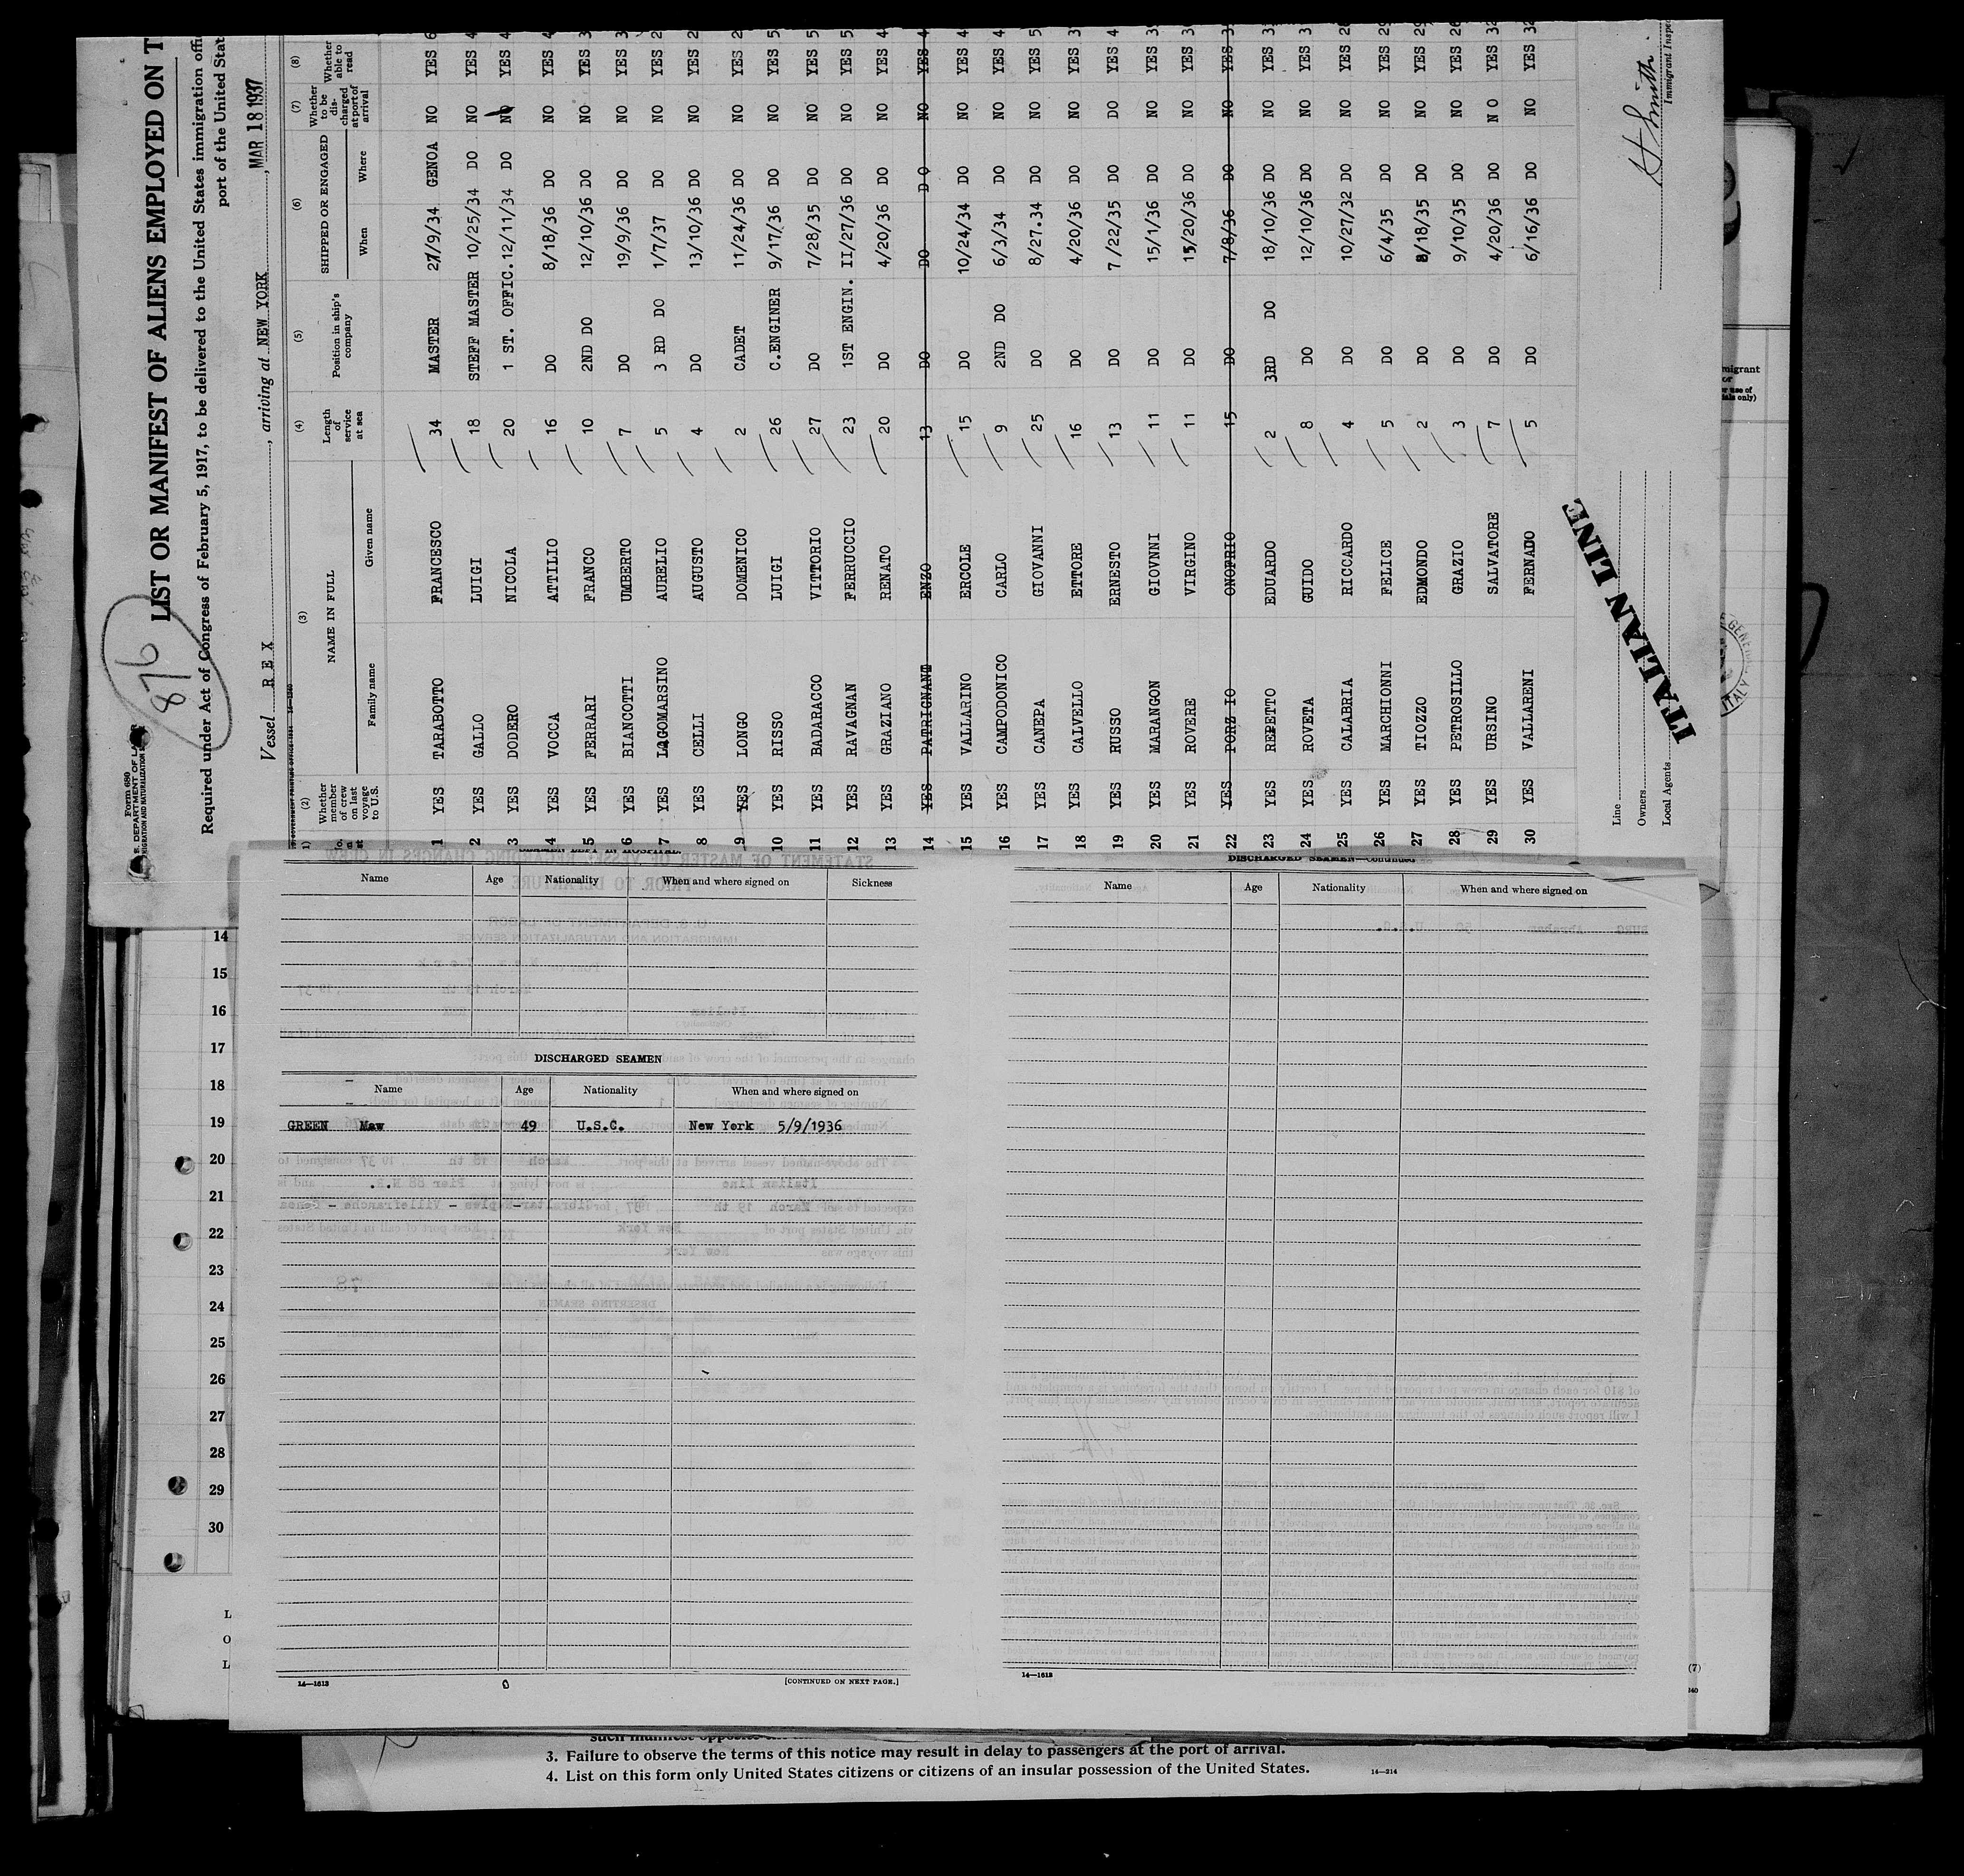 Form 680
876
LIST OR MANIFEST OF ALIENS EMPLOYED ON T
Required under Act of Congress of February 5, 1917, to be delivered to the United States immigration
port of the United Stat
Vessel REX, arriving at NEW YORK, MAR 18 1937
(2) (3) (4) (5) (6) (7) (8)
Whether member of crew on last voyage to U.S. NAME IN FULL Family name Given name Length of service at sea Position in ship's company SHIPPED OR ENGAGED When Where Whether to be discharged at port of arrival Whether able to read
1 YES TARABOTTO FRANCESCO 34 MASTER 27/9/34 GENOA NO YES 6
2 YES GALLO LUIGI 18 STEFF MASTER 10/25/34 DO NO YES 4
3 YES DODERO NICOLA 20 1 ST. OFFIC. 12/11/34 DO NO YES 4
4 YES VOCCA ATTILIO 16 DO 8/18/36 DO NO YES 4
5 YES FERRARI FRANCO 10 2ND DO 12/10/36 DO NO YES 3
6 YES BIANCOTTI UMBERTO 7 DO 19/9/36 DO NO YES 3
7 YES LAGOMARSINO AURELIO 5 3 RD DO 1/7/37 DO NO YES 2
8 YES CELLI AUGUSTO 4 DO 13/10/36 DO NO YES 2
9 YES LONGO DOMENICO 2 CADET 11/24/36 DO NO YES 2
10 YES RISSO LUIGI 26 C.ENGINER 9/17/36 DO NO YES 5
11 YES BADARACCO VITTORIO 27 DO 7/28/35 DO NO YES 5
12 YES RAVAGNAN FERRUCCIO 23 1ST ENGIN. II/27/36 DO NO YES 5
13 YES GRAZIANO RENATO 20 DO 4/20/36 DO NO YES 4
14 YES PATRIGNANI ENZO 13 DO DO DO NO YES 4
15 YES VALLARINO ERCOLE 15 DO 10/24/34 DO NO YES 4
16 YES CAMPODONICO CARLO 9 2ND DO 6/3/34 DO NO YES 4
17 YES CANEPA GIOVANNI 25 DO 8/27.34 DO NO YES 5
18 YES CALVELLO ETTORE 16 DO 4/20/36 DO NO YES 3
19 YES RUSSO ERNESTO 13 DO 7/22/35 DO DO YES 4
20 YES MARANGON GIOVNNI 11 DO 15/1/36 DO NO YES 3
21 YES ROVERE VIRGINO 11 DO 15/20/36 DO NO YES 3
22 YES PORZ IO ONOFRIO 15 DO 7/8/36 DO NO YES 3
23 YES REPETTO EDUARDO 2 3RD DO 18/10/36 DO NO YES 3
24 YES ROVETA GUIDO 8 DO 12/10/36 DO NO YES 3
25 YES CALABRIA RICCARDO 4 DO 10/27/32 DO NO YES 28
26 YES MARCHIONNI FELICE 5 DO 6/4/35 DO NO YES 29
27 YES TIOZZO EDMONDO 2 DO 8/18/35 DO NO YES 29
28 YES PETROSILLO GRAZIO 3 DO 9/10/35 DO NO YES 26
29 YES URSINO SALVATORE 7 DO 4/20/36 DO N O YES 32
30 YES VALLARENI FERNADO 5 DO 6/16/36 DO NO YES 32
Line
Owners
Local Agents
ITALIAN LINE
H Smith
Immigrant Inspe
Name Age Nationality When and where signed on Sickness
DISCHARGED SEAMEN
Name Age Nationality When and where signed on
GREEN Maw 49 U.S.C. New York 5/9/1936
14—1613
[CONTINUED ON NEXT PAGE.]
DISCHARGED SEAMEN—Continued
Name Age Nationality When and where signed on
14—1613
14
15
16
17
18
19
20
21
22
23
24
25
26
27
28
29
30
L
O
L
(7)
3. Failure to observe the terms of this notice may result in delay to passengers at the port of arrival.
4. List on this form only United States citizens or citizens of an insular possession of the United States.
14—214